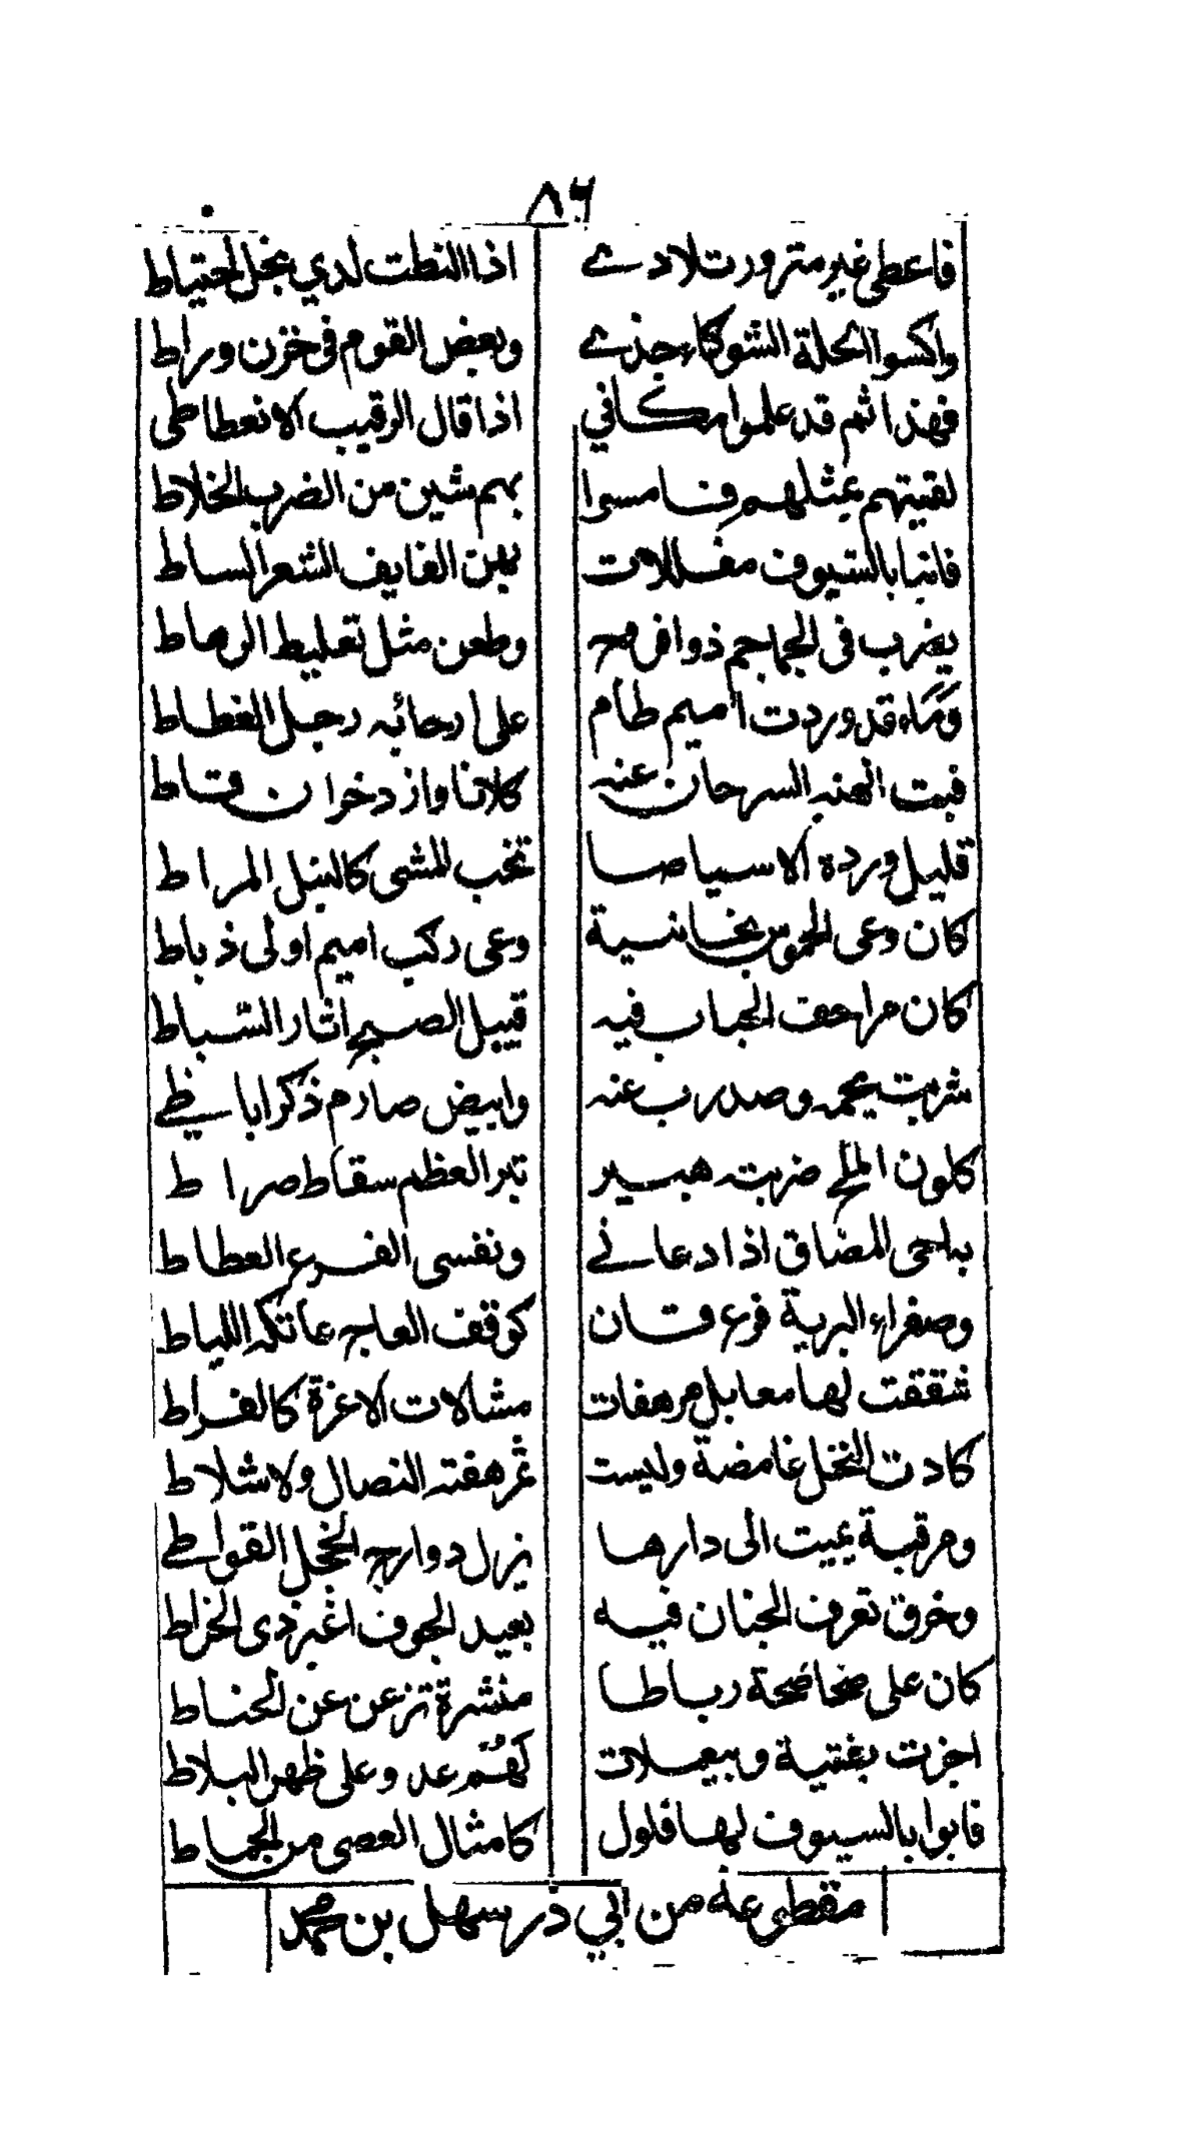 ٨٦
فاعطى غير منزور تلادے اذا النطت لدي بخل لحتياط
واكسوا الحلة الشوكاء خذے وبعض القوم فى خزن وراط
فهذا ثم قد علموا مكاني اذا قال الرقيب الا نعطاطى
لقيتهم بمثلهم فامسوا بهم شين من الضرب الخلاط
فانبا بالسيوف مفللات بهن الفايف الشعر الساط
بضرب فى الجماجم ذوافروح وطعن مثل تعليط الرهاط
وماء قد وردت اميم طام على ارحائه رجل الغطاط
فبت انهنه السرحان عنه كلانا وارد خران قاط
قليل ورده الا سباصا تخب المشى كالنبل المراط
كان وعى الخموس بخانبية وعى ركب اميم اولى ذباط
كان مزاحف الجباب فيه قبيل الصبح اثار السباط
شربت بجمه وصدرب عنه وابيض صارم ذكر اباطے
كلون الملح ضربته هبير تبر العظم سقاط صراط
به احمى المضاق اذا دعانے ونفسى الفرع العطاط
وصفراء البرية فرع قان كوقف العاج عاتكه اللياط
شققت لها معابل مرهفات مشالات الاغرة كالفراط
كادت النخل غامضة وليست بمرهفته النصال ولا شلاط
ومرقبة نميت الى دارها يزل دوارج الحجل القواطے
وخرق تعرف الجنان فيه بعيد الجوف اغبر ذى الخراط
كان على ضحاضحة رباطا منشرة تزعن عن الحناط
اجزت بفتية وبيعملات كفهم عدو على ظهر البلاط
فابوا بالسيوف لها فلول كامثال العصى من الجماط
مقطوعة من ابي ذر سهل بن محمد